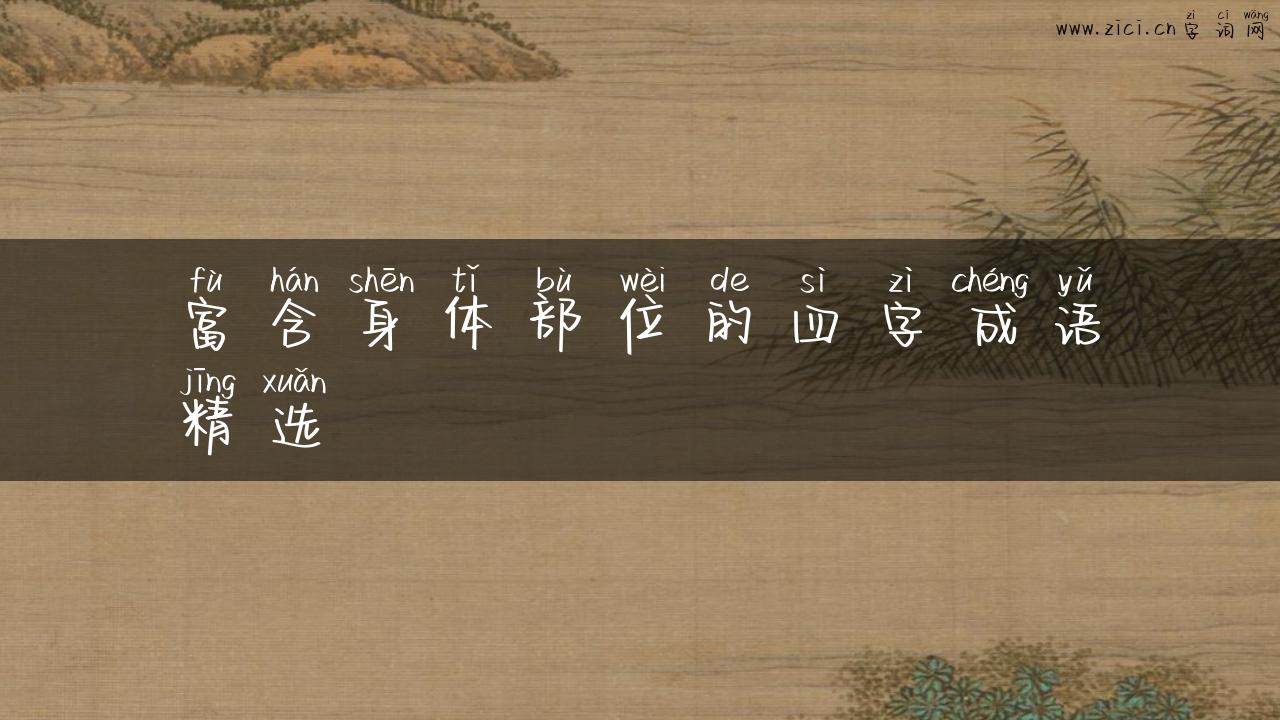 zì cí wǎng
www.zici.cn 字词网
fù hán shēn tǐ bù wèi de sì zì chéng yǔ
富含身体部位的四字成语
jīng xuǎn
精选